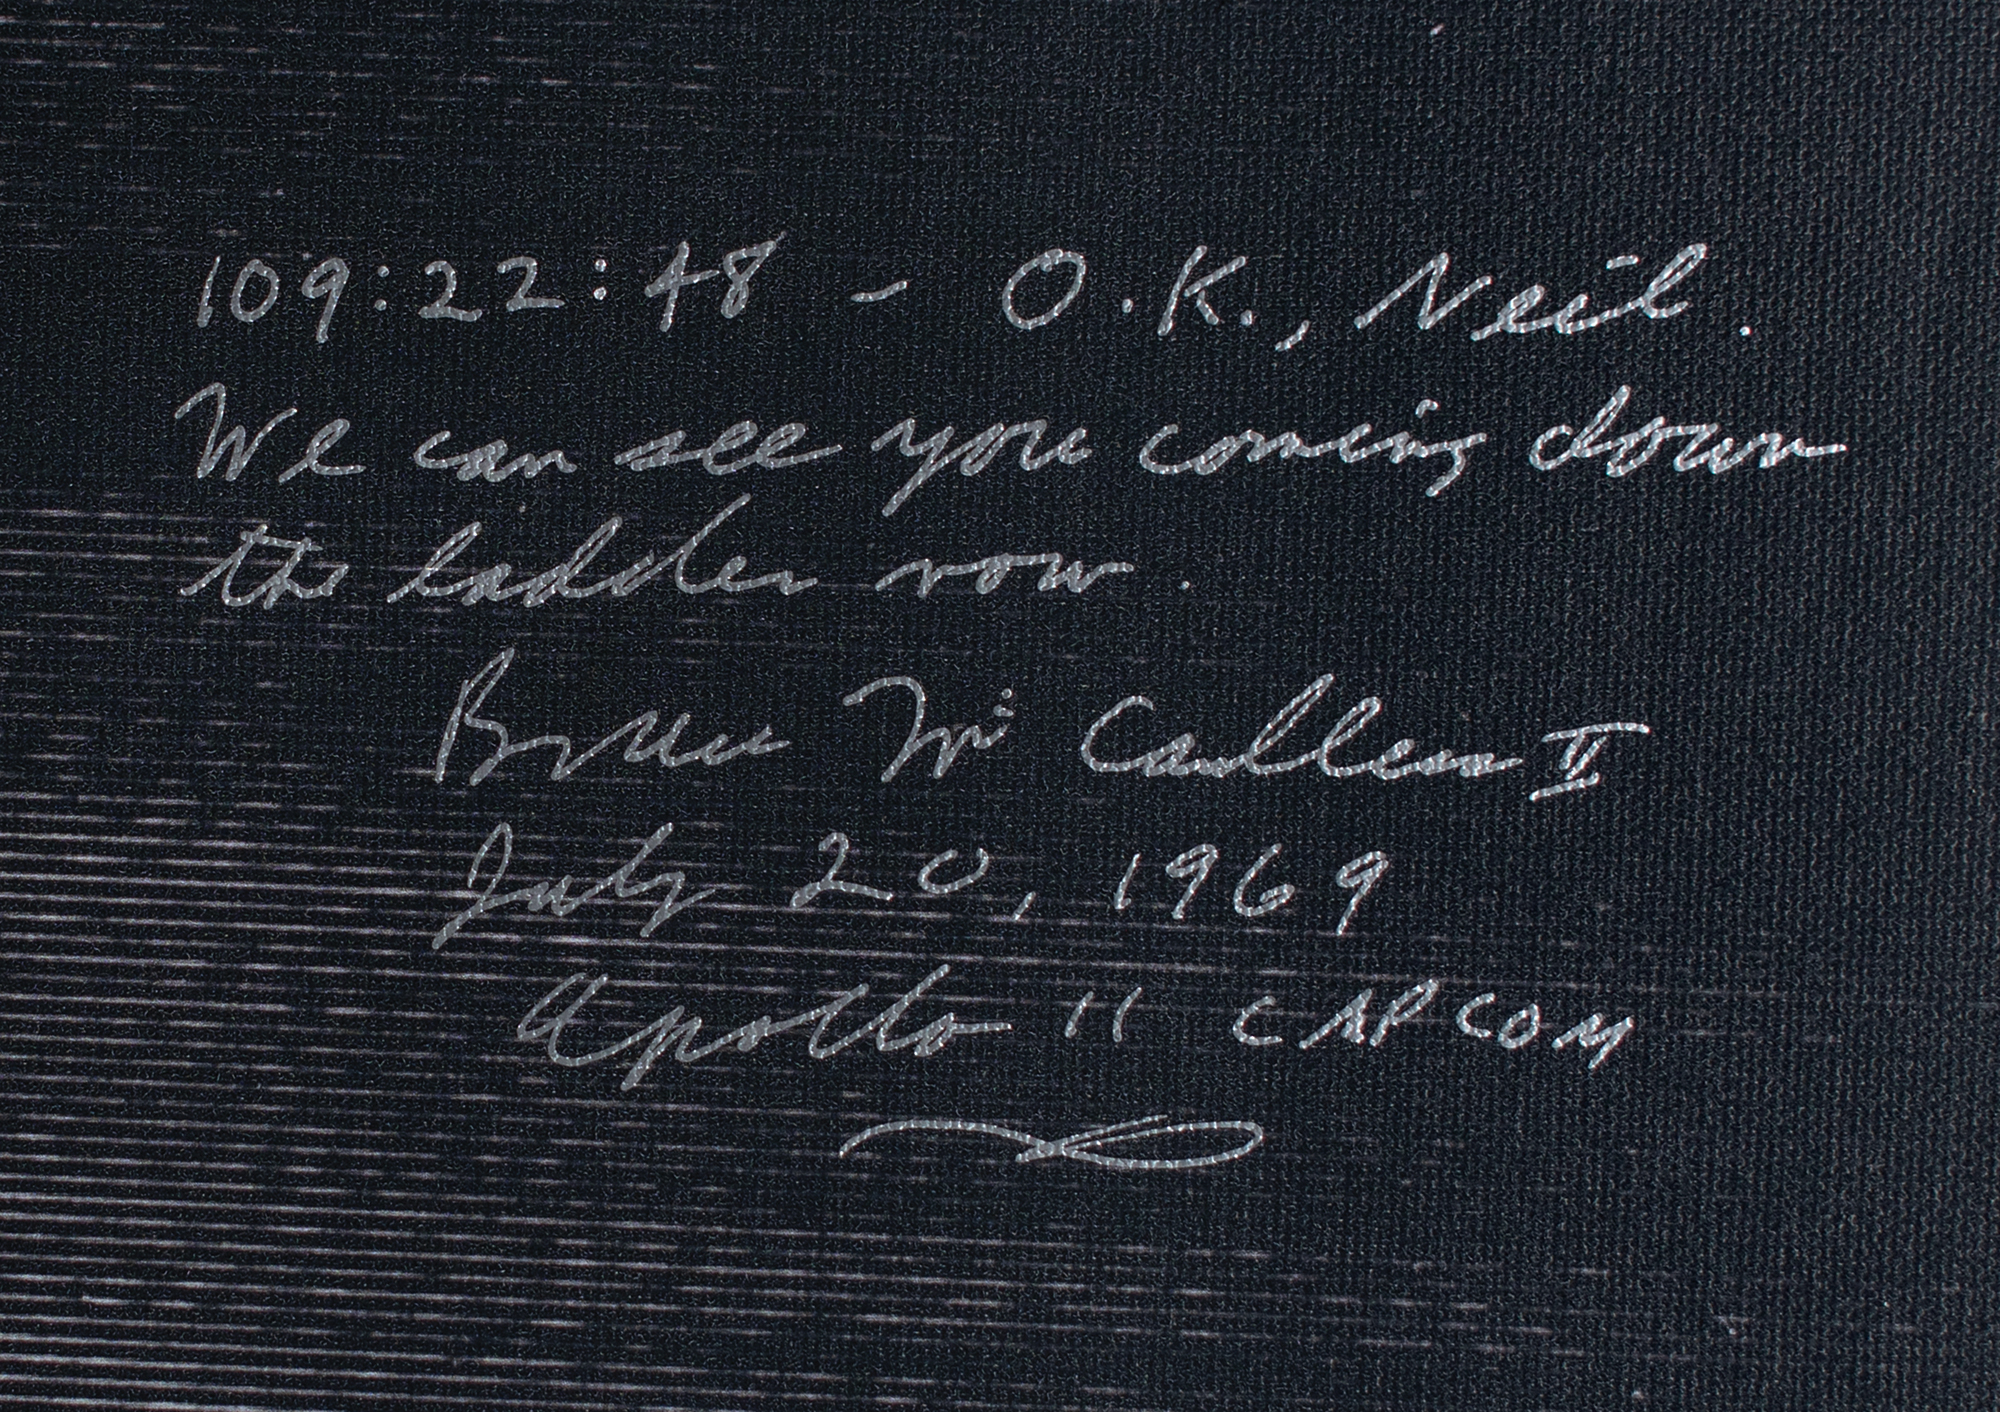 109:22:48 - O.K., Neil.
We can see you coming down
the ladder now.
Bruce Mc Candless II
July 20, 1969
Apollo 11 CAPCOM